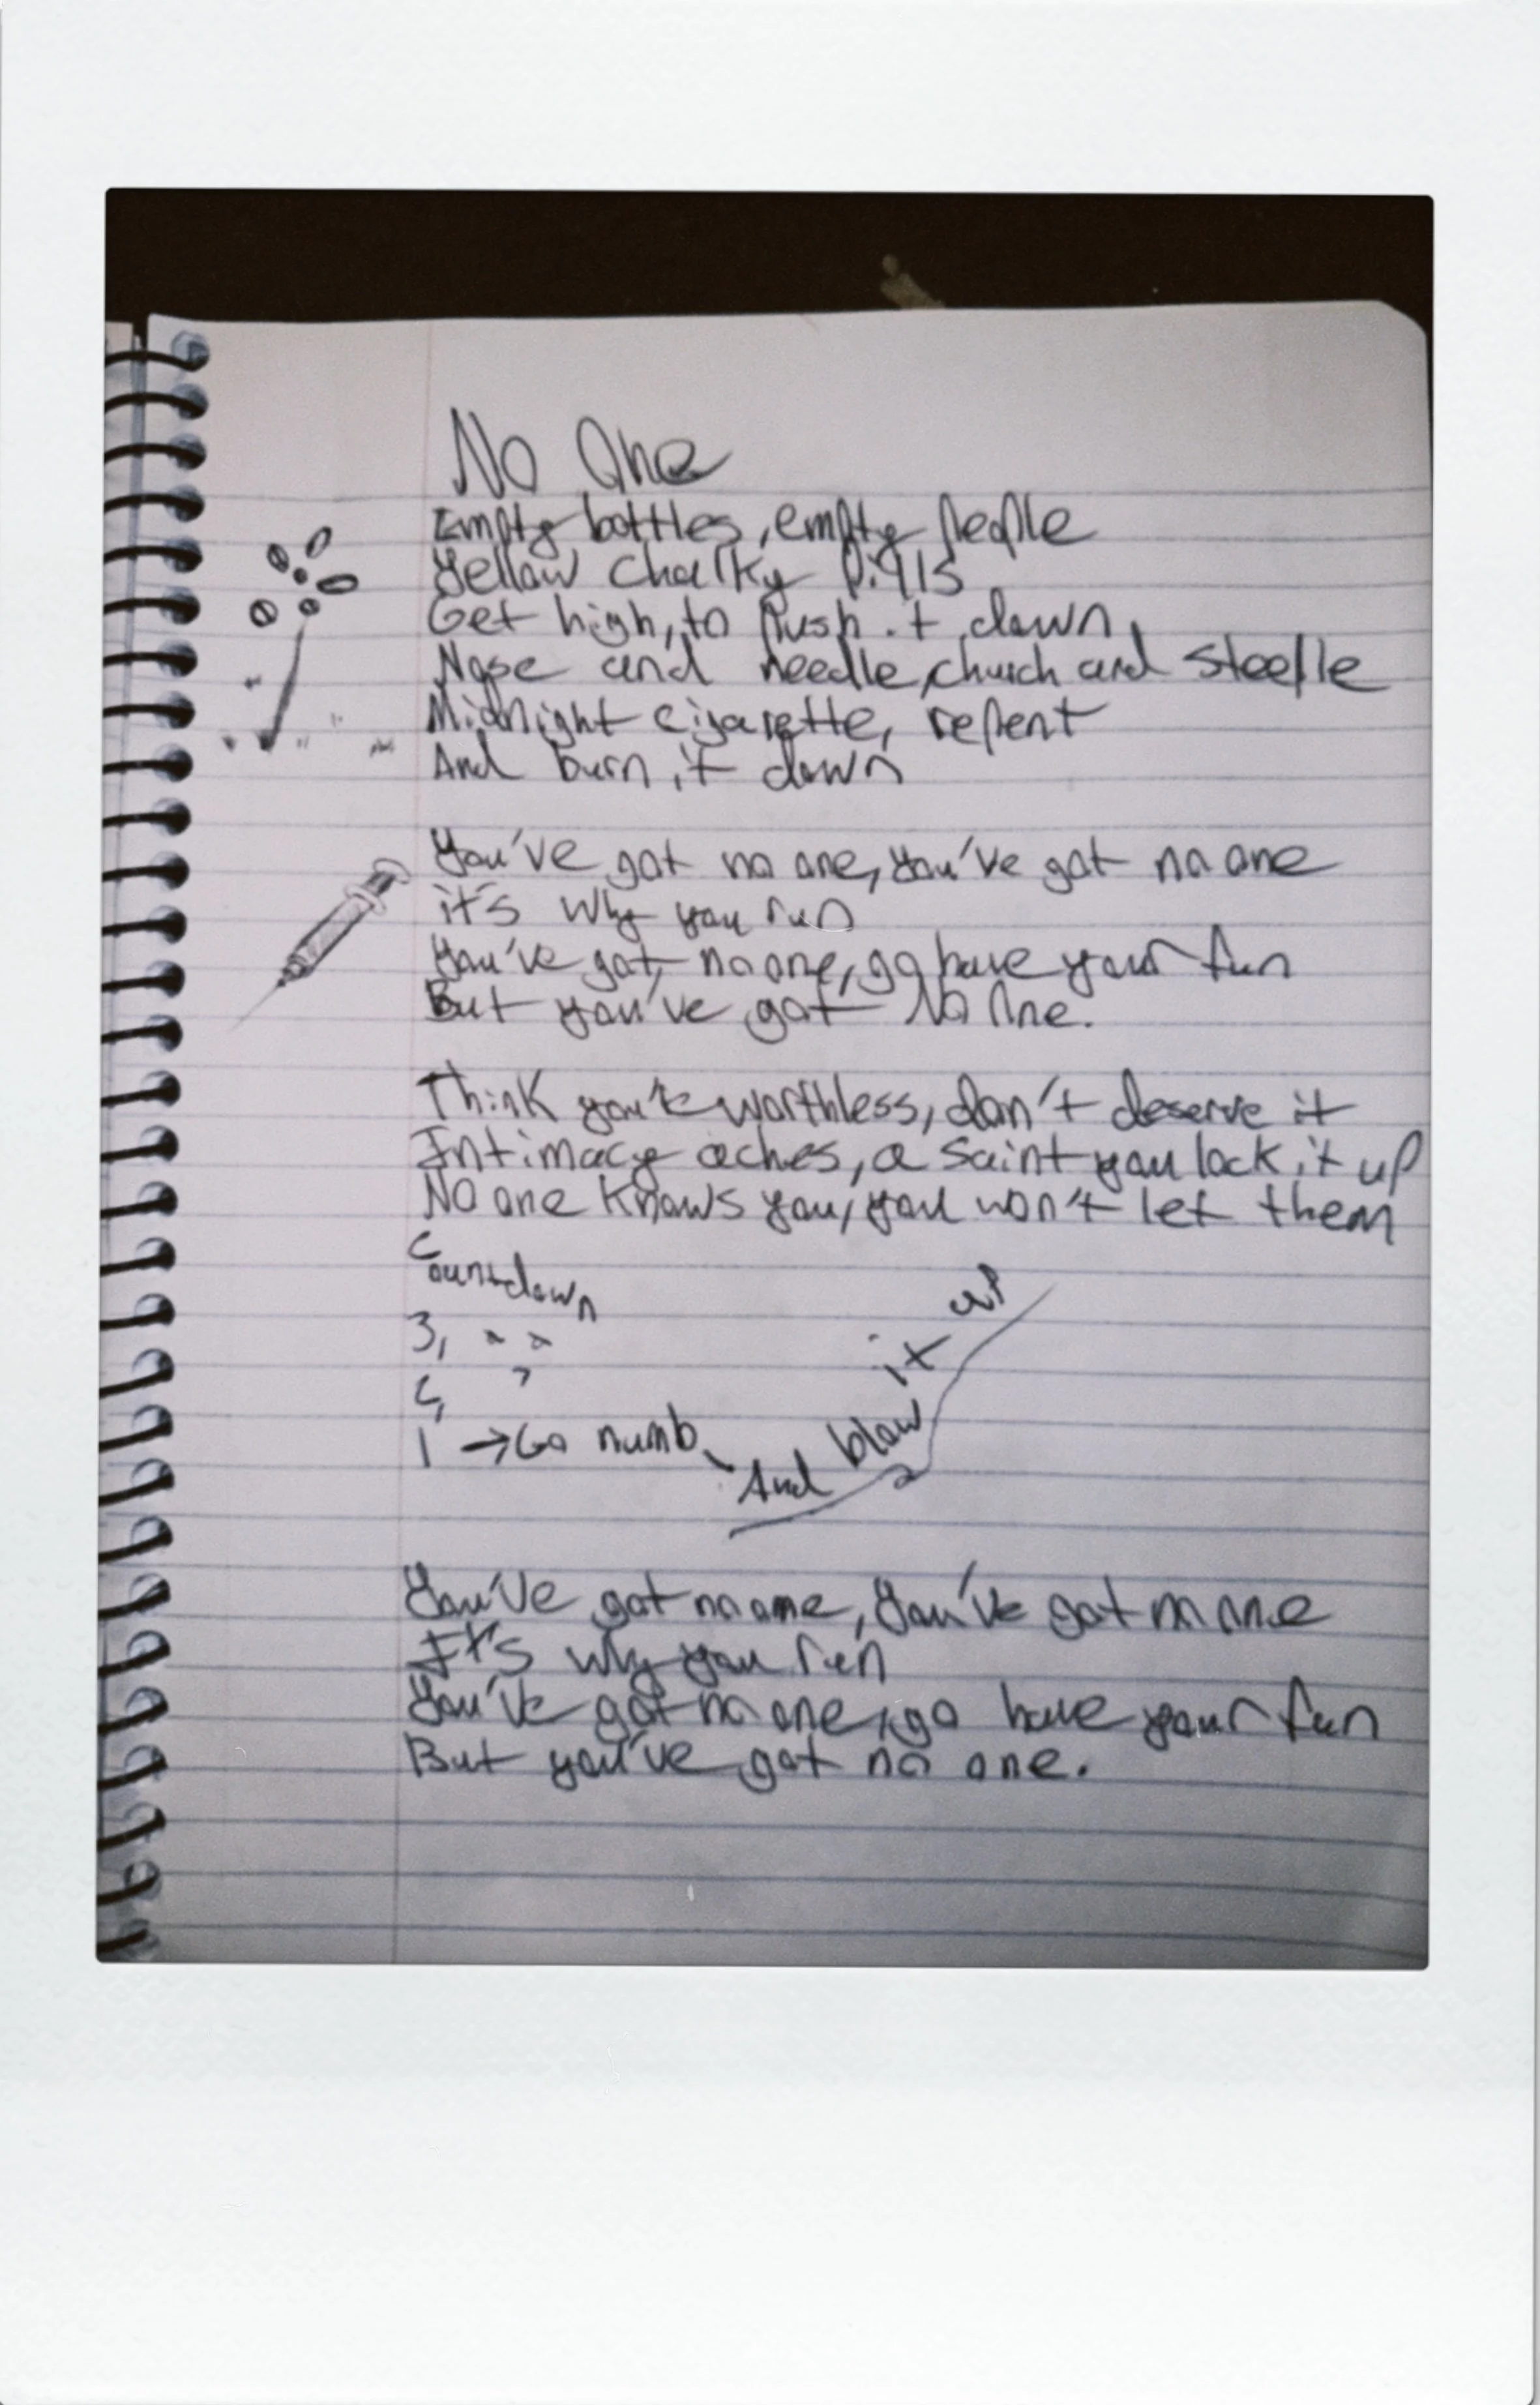 No One
Empty bottles, empty people
Yellow Chalky
Get high, to push it down,
Nose and needle, church and steeple
Midnight cigarette, repent
And burn it down
You've got no one, you've got no one
it's why you run
You've got no one, go have your fun
But you've got No One.
Think you're worthless, don't deserve it
Intimacy aches, a saint you lock it up
No one knows you, you won't let them
Countdown
3,
1 → Go numb,
And blow it up
You've got no one, You've got no one
It's why you run
You've got no one, go have your fun
But you've got no one.